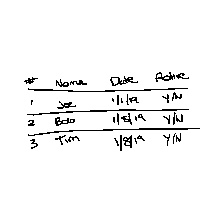 # Name Date Active
1 Joe 1/1/19 Y/N
2 Bob 1/8/19 Y/N
3 Tim 1/8/19 Y/N